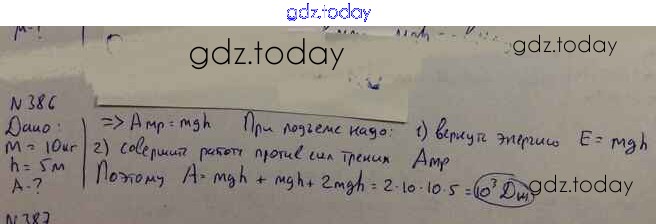 gdz.today
gdz.today
gdz.today
N 386
Дано:
m = 10 кг
h = 5 м
A - ?
=> Aтр = mgh При подъеме надо: 1) вернуть энергию E = mgh
2) совершить работу против сил трения Aтр
Поэтому A = mgh + mgh + 2mgh = 2·10·10·5 = 10³ Дж
gdz.today
N 387